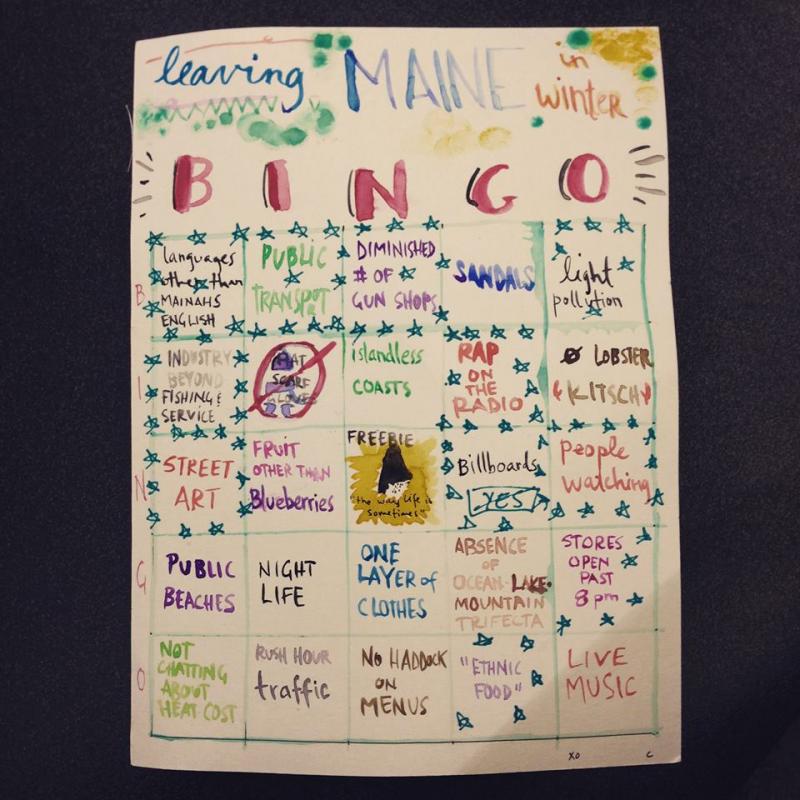 leaving MAINE in winter
B I N G O
B
languages
other than
MAINAHS
ENGLISH
PUBLIC
TRANSPOT
R
DIMINISHED
# OF
GUN SHOPS
SANDALS
light
pollution
I
INDUSTRY
BEYOND
FISHING &
SERVICE
HAT
SCARF
GLOVES
islandless
COASTS
RAP
ON
THE
RADIO
Ø LOBSTER
KITSCH
N
STREET
ART
FRUIT
OTHER THAN
Blueberries
FREEBIE
"the way life is
sometimes"
Billboards
YES
people
watching
G
PUBLIC
BEACHES
NIGHT
LIFE
ONE
LAYER of
CLOTHES
ABSENCE
OF
OCEAN-LAKE-
MOUNTAIN
TRIFECTA
STORES
OPEN
PAST
8 pm
O
NOT
CHATTING
ABOUT
HEAT COST
RUSH HOUR
traffic
NO HADDOCK
ON
MENUS
"ETHNIC
FOOD"
LIVE
MUSIC
XO C